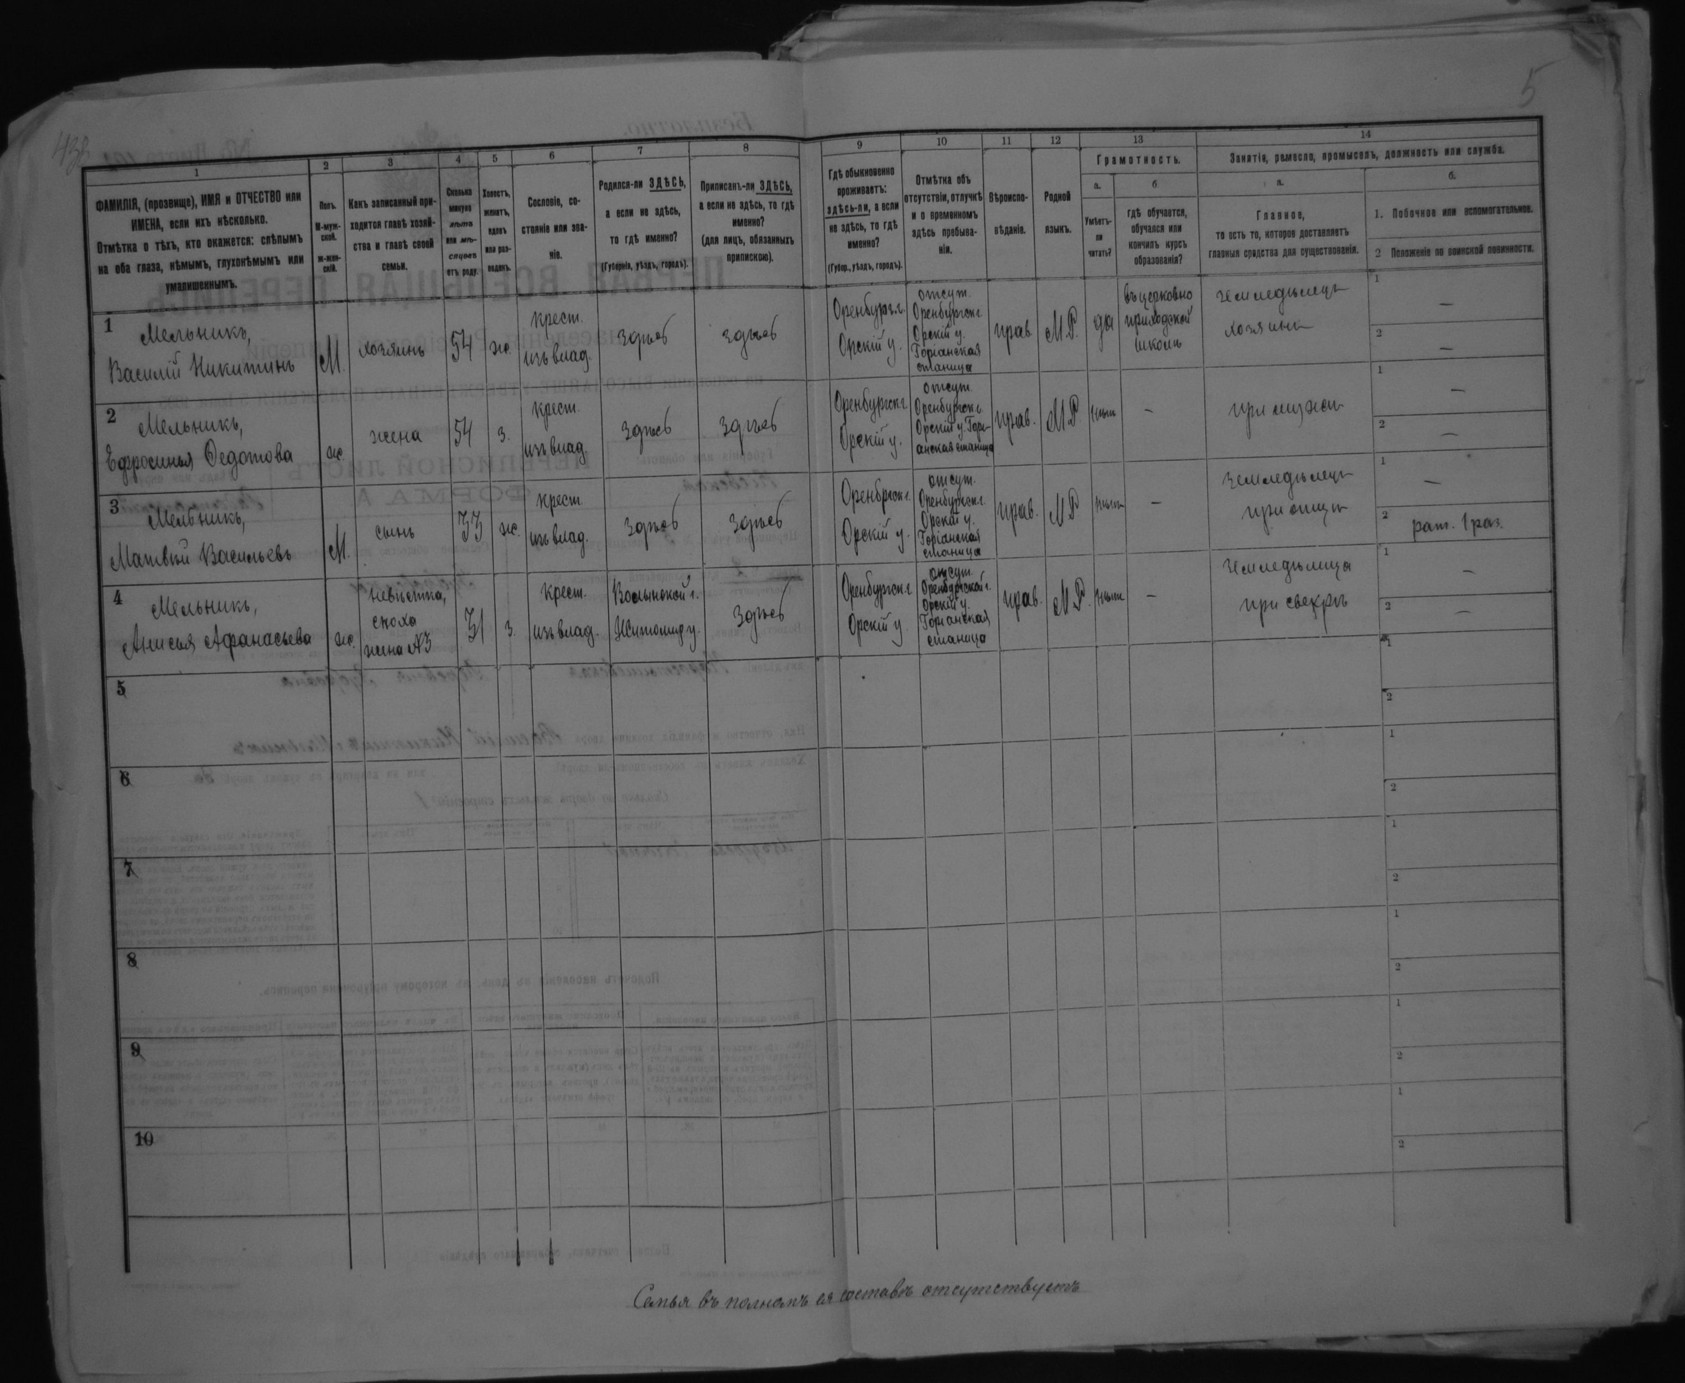 5
438
1
2
3
4
5
6
7
8
9
10
11
12
13
14
ФАМИЛІЯ, (прозвище), ИМЯ и ОТЧЕСТВО или
ИМЕНА, если ихъ нѣсколько.
Отмѣтка о тѣхъ, кто окажется: слѣпымъ
на оба глаза, нѣмымъ, глухонѣмымъ или
умалишеннымъ.
Полъ.
М-муж-
ской.
ж-жен-
скій.
Какъ записанный при-
ходится главѣ хозяй-
ства и главѣ своей
семьи.
Сколько
минуло
лѣтъ
или мѣ-
сяцевъ
отъ роду.
Холостъ,
женатъ,
вдовъ
или раз-
веденъ.
Сословіе, со-
стояніе или зва-
ніе.
Родился-ли ЗДѢСЬ,
а если не здѣсь,
то гдѣ именно?
(Губернія, уѣздъ, городъ).
Приписанъ-ли ЗДѢСЬ,
а если не здѣсь, то гдѣ
именно?
(для лицъ, обязанныхъ
припискою).
Гдѣ обыкновенно
проживаетъ:
здѣсь-ли, а если
не здѣсь, то гдѣ
именно?
(Губер., уѣздъ, городъ).
Отмѣтка объ
отсутствіи, отлучкѣ
и о временномъ
здѣсь пребыва-
ніи.
Вѣроиспо-
вѣданіе.
Родной
языкъ.
Грамотность.
а.
б.
Умѣетъ-
ли
читать?
гдѣ обучается,
обучался или
кончилъ курсъ
образованія?
Занятіе, ремесло, промыселъ, должность или служба.
а.
б.
Главное,
то есть то, которое доставляетъ
главныя средства для существованія.
1. Побочное или вспомогательное.
2 Положеніе по воинской повинности.
1
Мельникъ,
Василій Никитинъ
М.
хозяинъ
54
ж.
крест.
изъ влад.
здѣсь
здѣсь
Оренбург.г.
Орскій у.
отсут.
Оренбургск.г.
Орскій у.
Таріанская
станица
прав.
М.Р.
да
въ церковно
приходской
школѣ
земледѣлецъ
хозяинъ
1
—
2
—
2
Мельникъ,
Ефросинья Федотова
ж.
жена
54
з.
крест.
изъ влад.
здѣсь
здѣсь
Оренбургск.г.
Орскій у.
отсут.
Оренбургск.г.
Орскій у. Тарі-
анская станица
прав.
М.Р.
нѣтъ
—
при мужѣ
1
—
2
—
3
Мельникъ,
Матвѣй Васильевъ
М.
сынъ
33
ж.
крест.
изъ влад.
здѣсь
здѣсь
Оренбргск.г.
Орскій у.
отсут.
Оренбургск.г.
Орскій у.
Таріанская
станица
прав.
М.Р.
нѣтъ
—
земледѣлецъ
при отцѣ
1
—
2
рат. 1 раз.
4
Мельникъ,
Анисья Афанасьева
ж.
невѣстка,
сноха
жена №3
31
з.
крест.
изъ влад.
Волынской г.
Житомир у.
здѣсь
Оренбургск.г.
Орскій у.
отсут.
Оренбургской г.
Орскій у.
Таріанская
станица
прав.
М.Р.
нѣтъ
—
земледѣлица
при свекрѣ
1
—
2
—
5
1
2
6
1
2
7
1
2
8
1
2
9
1
2
10
1
2
Семья въ полномъ ея составѣ отсутствуетъ